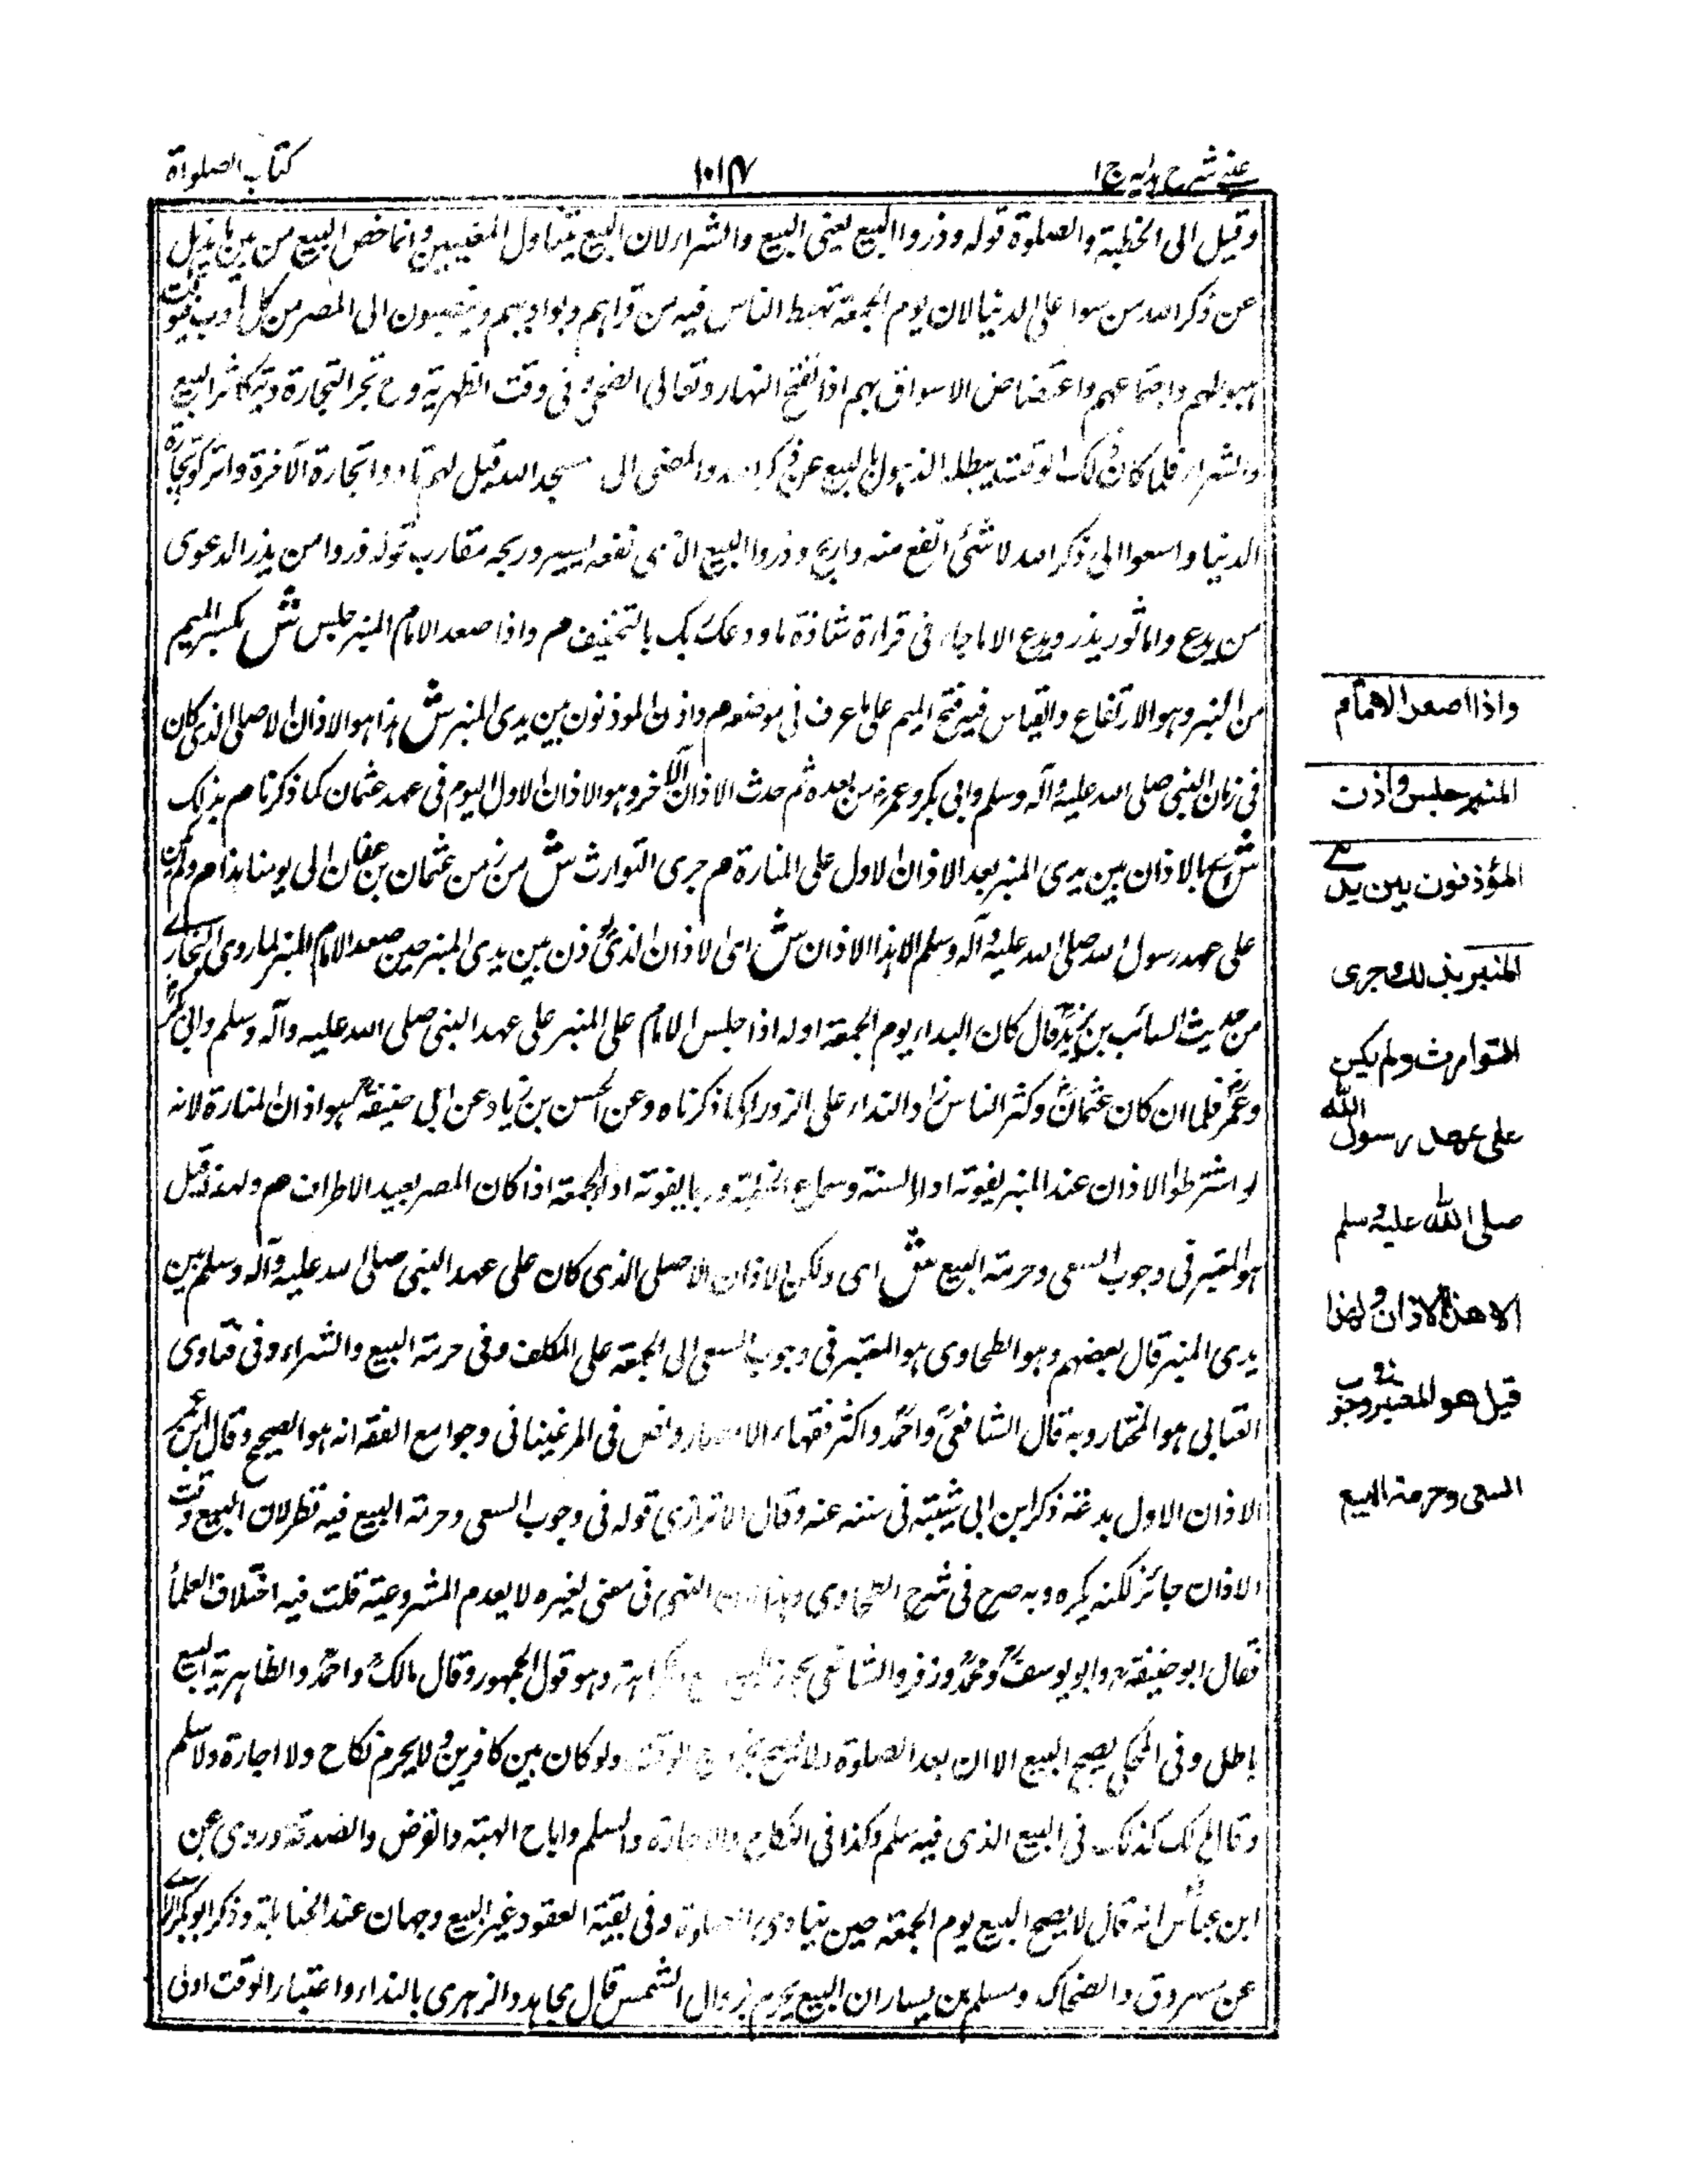 عینی شرح ہدایہ ج ۱
۱۰۱۷
کتاب الصلواة
وقيل الى الخطبة والصلوة قوله وذروا البيع يعنى البيع والشراء لان البيع يتناول المعنيين وانما خص البيع من بين ما يذهل
عن ذكر الله من سوا على الدنيا لان يوم الجمعة تهبط الناس فيه من قراهم وبواديهم وينصبون الى المصر من كل اوب فوقت
هبوطهم واجتماعهم واغتصاص الاسواق بهم اذا انتفخ النهار وتعالى الضحى وفى وقت الظهرية وح تجر التجارة وتيكاثر البيع
والشراء فلما كان ذلك الوقت الذهول بالبيع عن ذكر الله والمضى الى مسجد الله قيل لهم بادروا تجارة الآخرة واتركوا تجارة
الدنيا واسعوا الى ذكر الله لا شئ انفع منه واربح وذروا البيع الذى نفعه يسير وربحه مقارب قوله ذروا من يذر الدعوى
من يدع واما ثور يذر ويدع الا ما جاء فى قراءة شاذة ما ودعك ربك بالتخفيف م واذا صعد الامام المنبر جلس ش بكسر الميم
من النبر وهو الارتفاع والقياس فيه فتح الميم على ما عرف فى موضعه م واذن المؤذنون بين يدى المنبر ش هذا هو الاذان الاصلى الذى كان
فى زمان النبى صلى الله عليه وآله وسلم وابى بكر وعمر من بعده ثم حدث الاذان الآخر وهو الاذان الاول اليوم فى عهد عثمان كما ذكرنا م بذلك
ش اى بالاذان بين يدى المنبر بعد الاذان الاول على المنارة م جرى التوارث ش من زمن عثمان بن عفان الى يومنا هذا م ولم يكن
على عهد رسول الله صلى الله عليه وآله وسلم الا هذا الاذان ش اى الاذان الذى يؤذن بين يدى المنبر حين صعد الامام المنبر لما روى البخارى
من حديث السائب بن يزيد قال كان النداء يوم الجمعة اوله اذا جلس الامام على المنبر على عهد النبى صلى الله عليه وآله وسلم وابى بكر
وعمر فلما ان كان عثمان وكثر الناس زاد النداء على الزوراء كما ذكرناه وعن الحسن بن زياد عن ابى حنيفة هو اذان المنارة لانه
لو اشترطوا الاذان عند المنبر يفوته اداء السنة وسماع الخطبة وربما يفوته اداء الجمعة اذا كان المصر بعيد الاطراف م ولهذا قيل
هو المعتبر فى وجوب السعى وحرمة البيع ش اى ولكن الاذان الاصلى الذى كان على عهد النبى صلى الله عليه وآله وسلم بين
يدى المنبر قال بعضهم وهو الطحاوى هو المعتبر فى وجوب السعى الى الجمعة على المكلف وفى حرمة البيع والشراء وفى فتاوى
العتابى هو المختار وبه قال الشافعى واحمد واكثر فقهاء الامصار ونص فى المرغينانى وجوامع الفقه انه هو الصحيح وقال ابن عمر
الاذان الاول بدعة ذكر ابن ابى شيبة فى سننه عنه وقال الاترازى قوله فى وجوب السعى وحرمة البيع فيه نظر لان البيع وقت
الاذان جائز لكنه يكره وبه صرح فى شرح الطحاوى النهى فى معنى لغيره لا يعدم المشروعية قلت فيه اختلاف العلماء
فقال ابو حنيفة وابو يوسف ومحمد وزفر والشافعى يجوز البيع مع الكراهة وهو قول الجمهور وقال مالك واحمد والظاهرية البيع
باطل وفى المحكى يصح البيع الا ان بعد الصلوة ولا يصح بخروج الوقت ولو كان بين كافرين ولا يحرم نكاح ولا اجارة ولا سلم
وقال مالك كذلك فى البيع الذى فيه سلم وكذا فى النكاح والاجارة والسلم واباح الهبة والقرض والصدقة وروى عن
ابن عباس انه قال لا يصح البيع يوم الجمعة حين ينادى بالصلوة وفى بقية العقود غير البيع وجهان عند الحنابلة وذكر ابو بكر
عن مسروق والضحاك ومسلم بن يسار ان البيع يحرم بزوال الشمس قال مجاهد والزهرى بالنداء واعتبار الوقت اولى
واذا اصعد الامام
المنبر جلس واذن
المؤذنون بين يدى
المنبر بذلك جرى
التوارث ولم يكن
على عهد رسول الله
صلى الله عليه وسلم
الا هذا الاذان ولهذا
قيل هو المعتبر فى وجوب
السعى وحرمة البيع